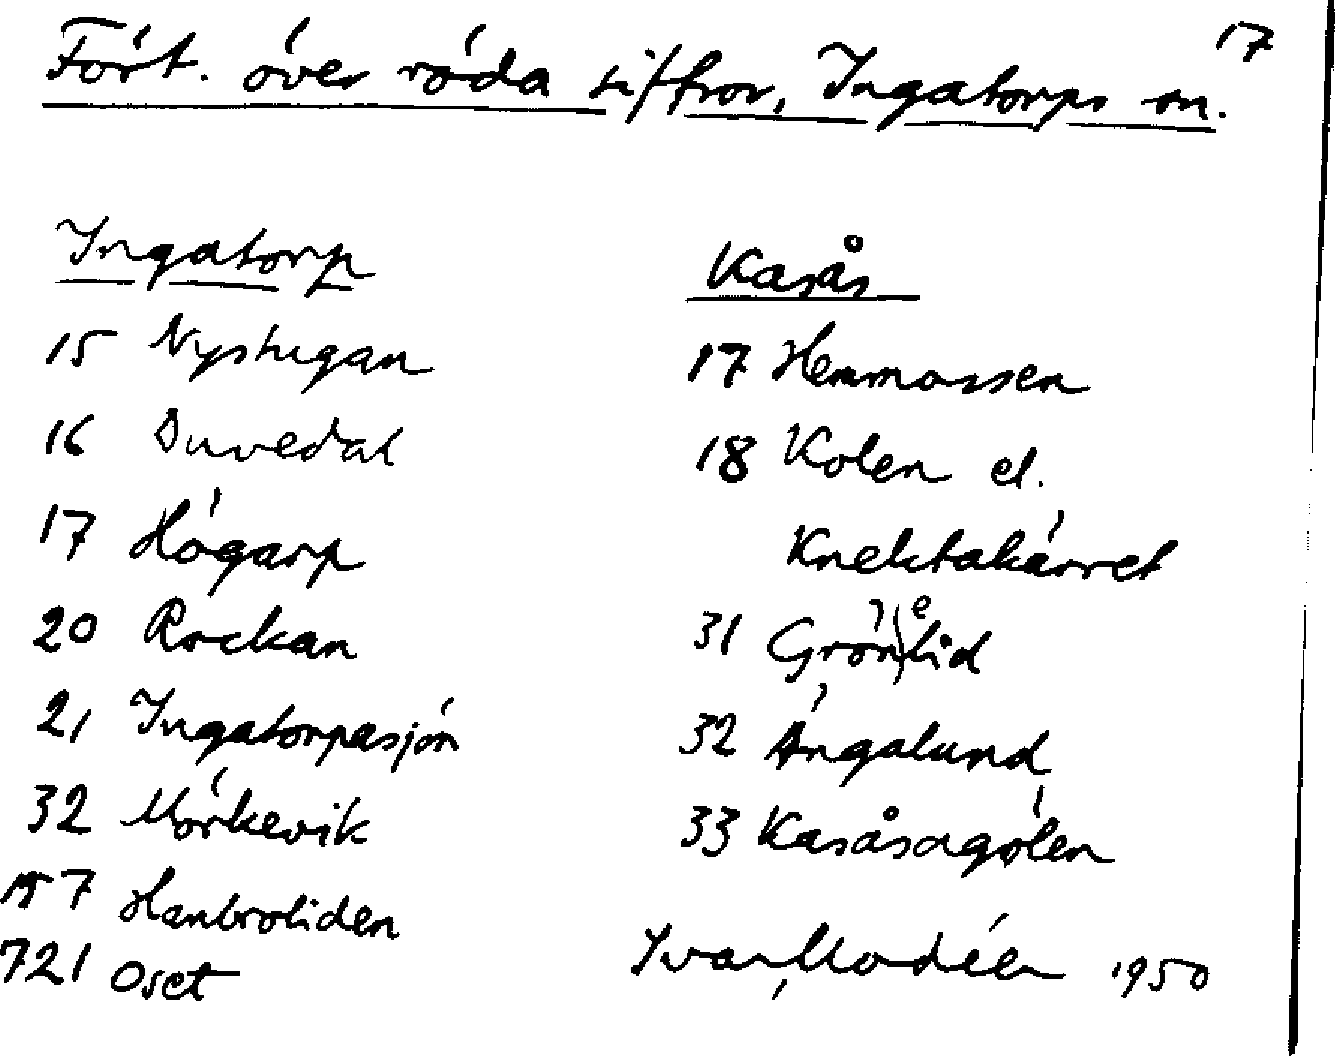 17
Fört. över röda siffror, Ingatorps sn.
Ingatorp
15 Nystugan
16 Duvedal
17 Högarp
20 Rockan
21 Ingatorpasjön
32 Mörkevik
157 Hanbroliden
721 Oset
Kasås
17 Hemmossen
18 Kolen el.
Knektakärret
31 Grön(e)lid
32 Ängalund
33 Kasåsagölen
Ivar Modéer 1950